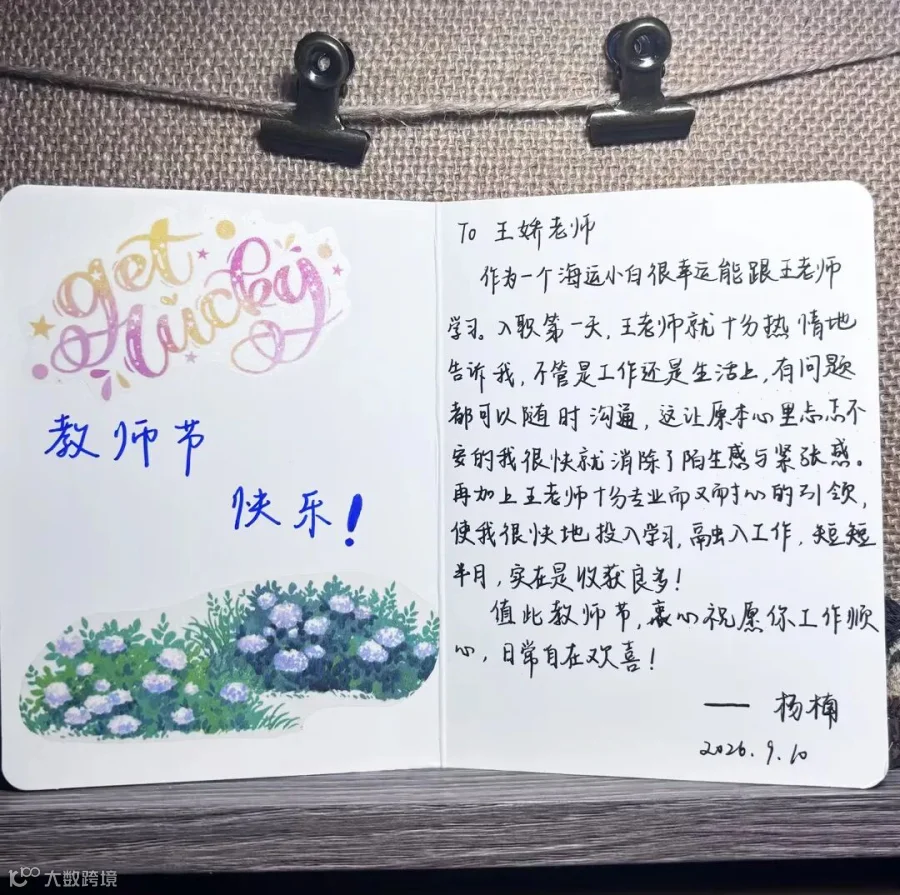 get
lucky
教师节
快乐！
To 王娇老师
作为一个海运小白很幸运能跟王老师
学习。入职第一天，王老师就十分热情地
告诉我，不管是工作还是生活上，有问题
都可以随时沟通，这让原本心里忐忑不
安的我很快就消除了陌生感与紧张感。
再加上王老师十分专业而又耐心的引领，
使我很快地投入学习，融入工作，短短
半月，实在是收获良多！
值此教师节，衷心祝愿你工作顺
心，日常自在欢喜！
— 杨楠
2026.9.10
大数跨境